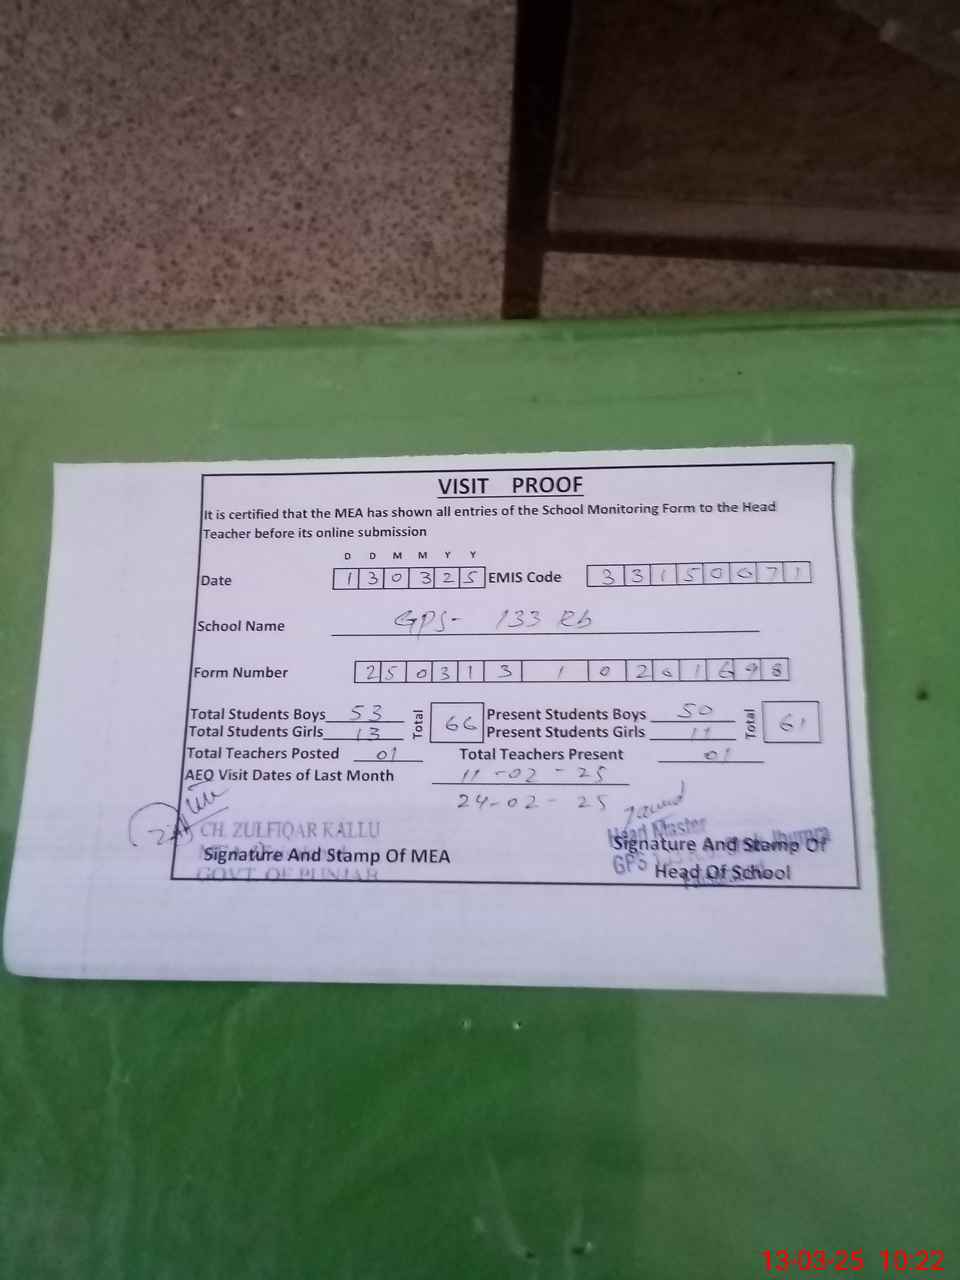 VISIT PROOF
It is certified that the MEA has shown all entries of the School Monitoring Form to the Head
Teacher before its online submission
D D M M Y Y
Date 130325 EMIS Code 33150071
School Name GPS- 133 Rb
Form Number 25031310201698
Total Students Boys 53 Total 66 Present Students Boys 50 Total 61
Total Students Girls 13 Present Students Girls 11
Total Teachers Posted 01 Total Teachers Present 01
AEO Visit Dates of Last Month 11-02-25
24-02-25
CH. ZULFIQAR KALLU
Head Master
Signature And Stamp Of MEA
Signature And Stamp Of
GOVT. OF PUNJAB
GPS
Head Of School
13-03-25 10:22